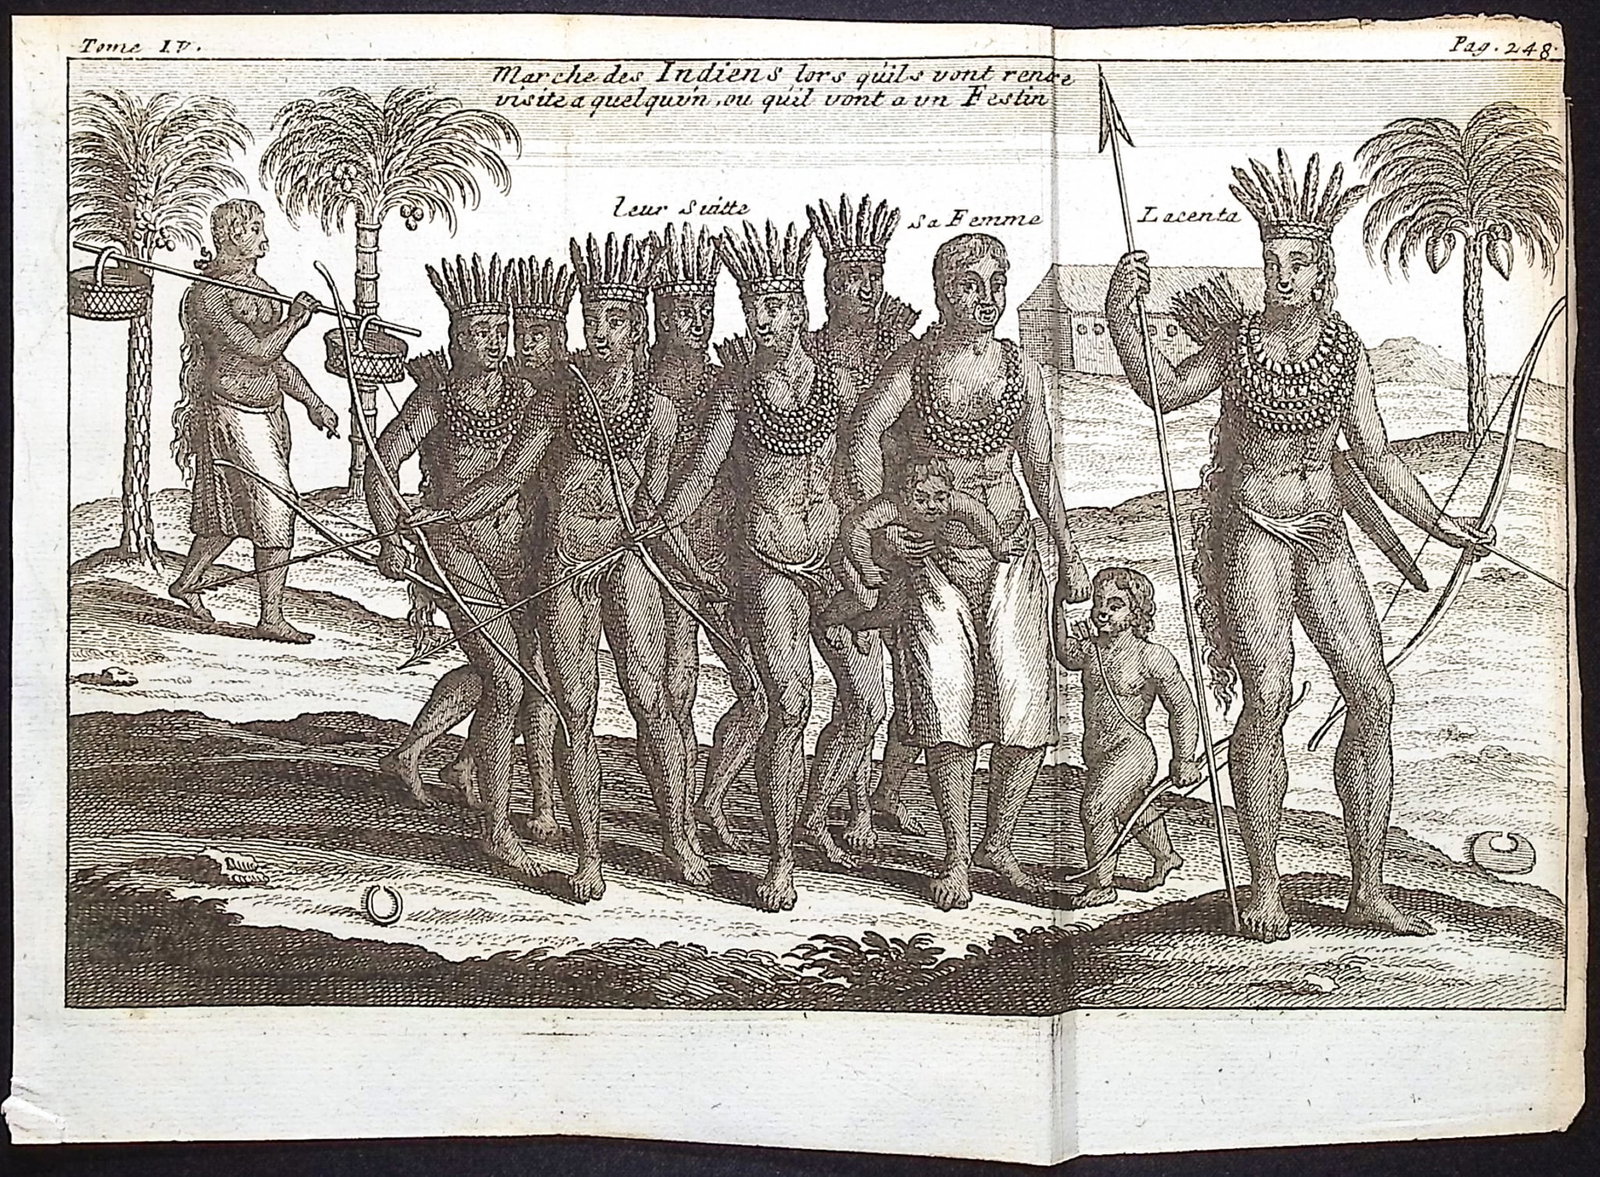 Tome IV.
Pag. 248.
Marche des Indiens lors qu'ils vont rendre
visite a quelqu'un, ou qu'il vont a un Festin
leur Suitte
Sa Femme
Lacenta